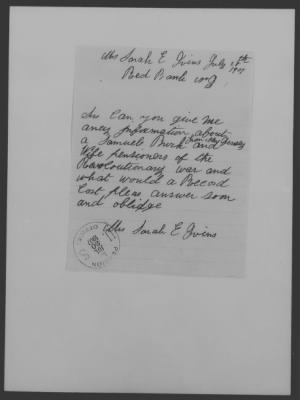 Mrs Sarah E Givins July 18th
1907
Red Bank N J
Sir Can you give me
aney Information about
a Samuel Burk and from New Jersey
Wife pensioners of the
Revoloutionary war and
what would a Record
Cost, Pleas answer soon
and oblidge
Mrs Sarah E Givins